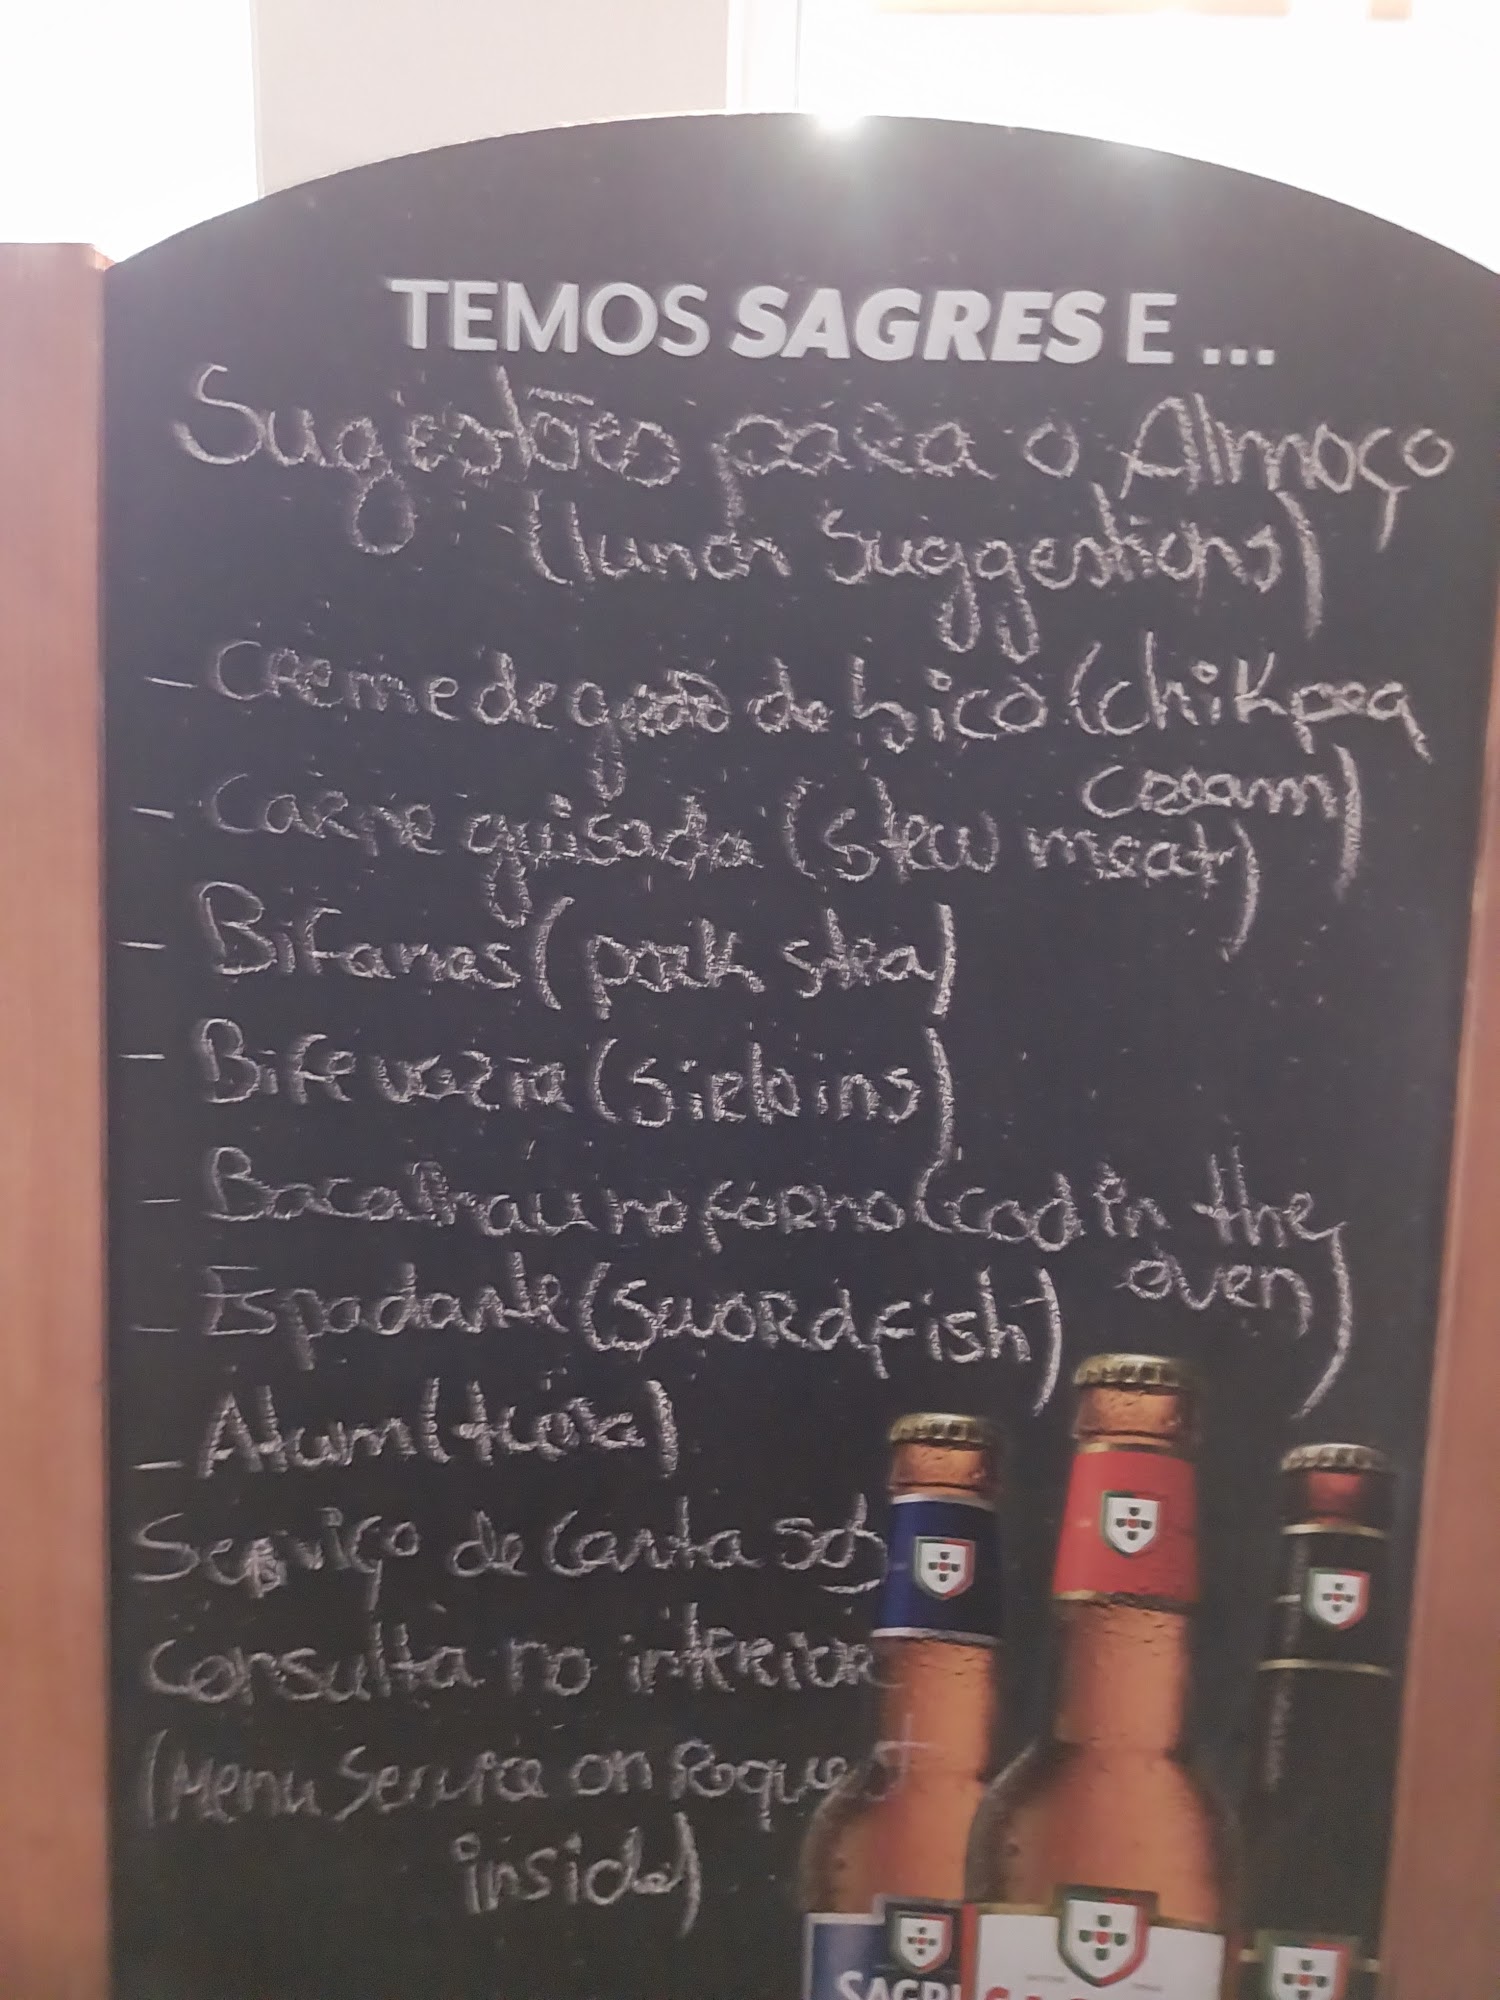 TEMOS SAGRES E ...
Sugestões para o Almoço
(lunch Suggestions)
- Creme de grão de bico (chikpea
cream)
- Carne guisada (stew meat)
- Bifanas (pork stea)
- Bife vazia (sirloins)
- Bacalhau no forno (cod in the
oven)
- Espadarte (Swordfish)
- Atum
Serviço de Carta sob
Consulta no interior
(Menu Service on Request
inside)
SAGR